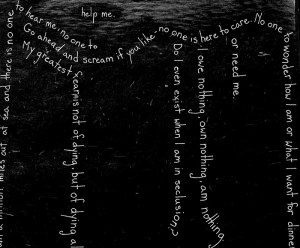 miles out at sea and there is no one
to hear me, no one to
help me.
Go ahead and scream if you like, no one is here to care. No one
to wonder how I am or what I want for dinne
or need me.
I owe nothing, own nothing, am nothing
Do I even exist when I am in seclusion?
My greatest
fear is not of dying, but of dying al